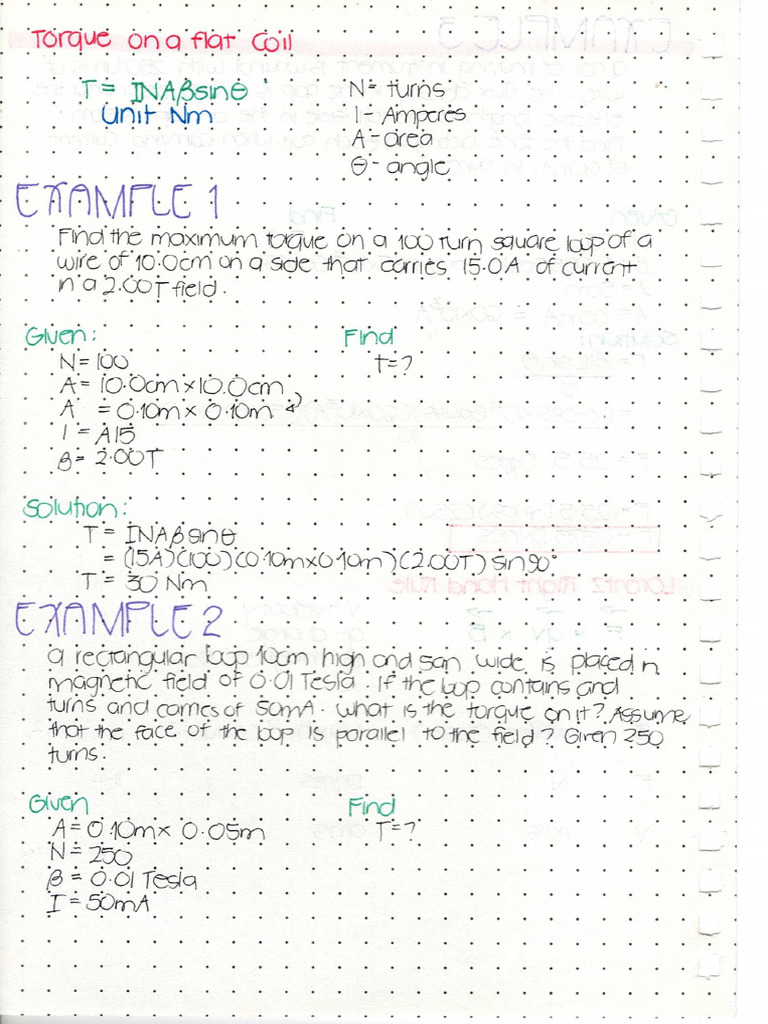 Torque on a flat Coil
T = INAβsinθ
N= turns
Unit Nm
I - Amperes
A - area
θ - angle
EXAMPLE 1
Find the maximum torque on a 100 turn square loop of a
wire of 10.0cm on a side that carries 15.0A of current
in a 2.00T field.
Given:
Find
N= 100
T=?
A= 10.0cm × 10.0cm
A = 0.10m × 0.10m
I = A15
β= 2.00T
Solution:
T = INAβsinθ
= (15A)(100)(0.10m×0.10m)(2.00T) sin90°
T = 30 Nm
EXAMPLE 2
a rectangular loop 10cm high and 5cm wide is placed in
magnetic field of 0.01 Tesla. If the loop contains and
turns and carries of 50mA. what is the torque on it? Assume
that the face of the loop is parallel to the field? Given 250
turns.
Given
Find
A= 0.10m × 0.05m
T=?
N= 250
β = 0.01 Tesla
I = 50mA